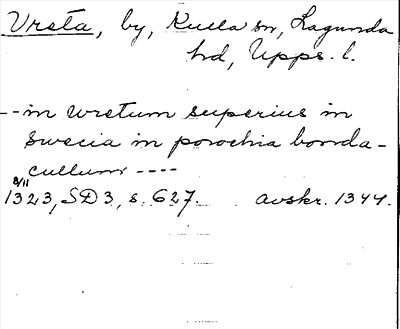 Vreta, by, Kulla sn, Lagunda
hd, Upps. l.
-- in wretum superius in
swecia in parochia bonda-
cullum ----
8/11
1323, SD3, s. 627. avskr. 1344.